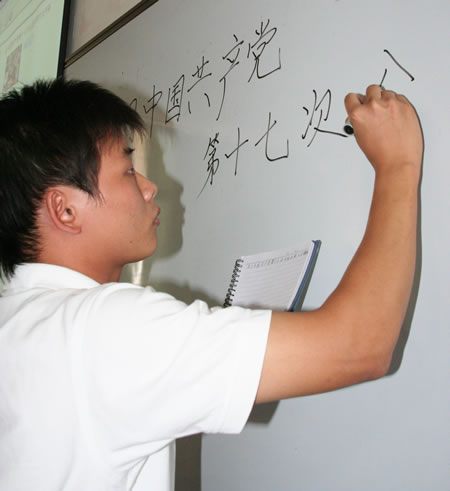 中国共产党
第十七次